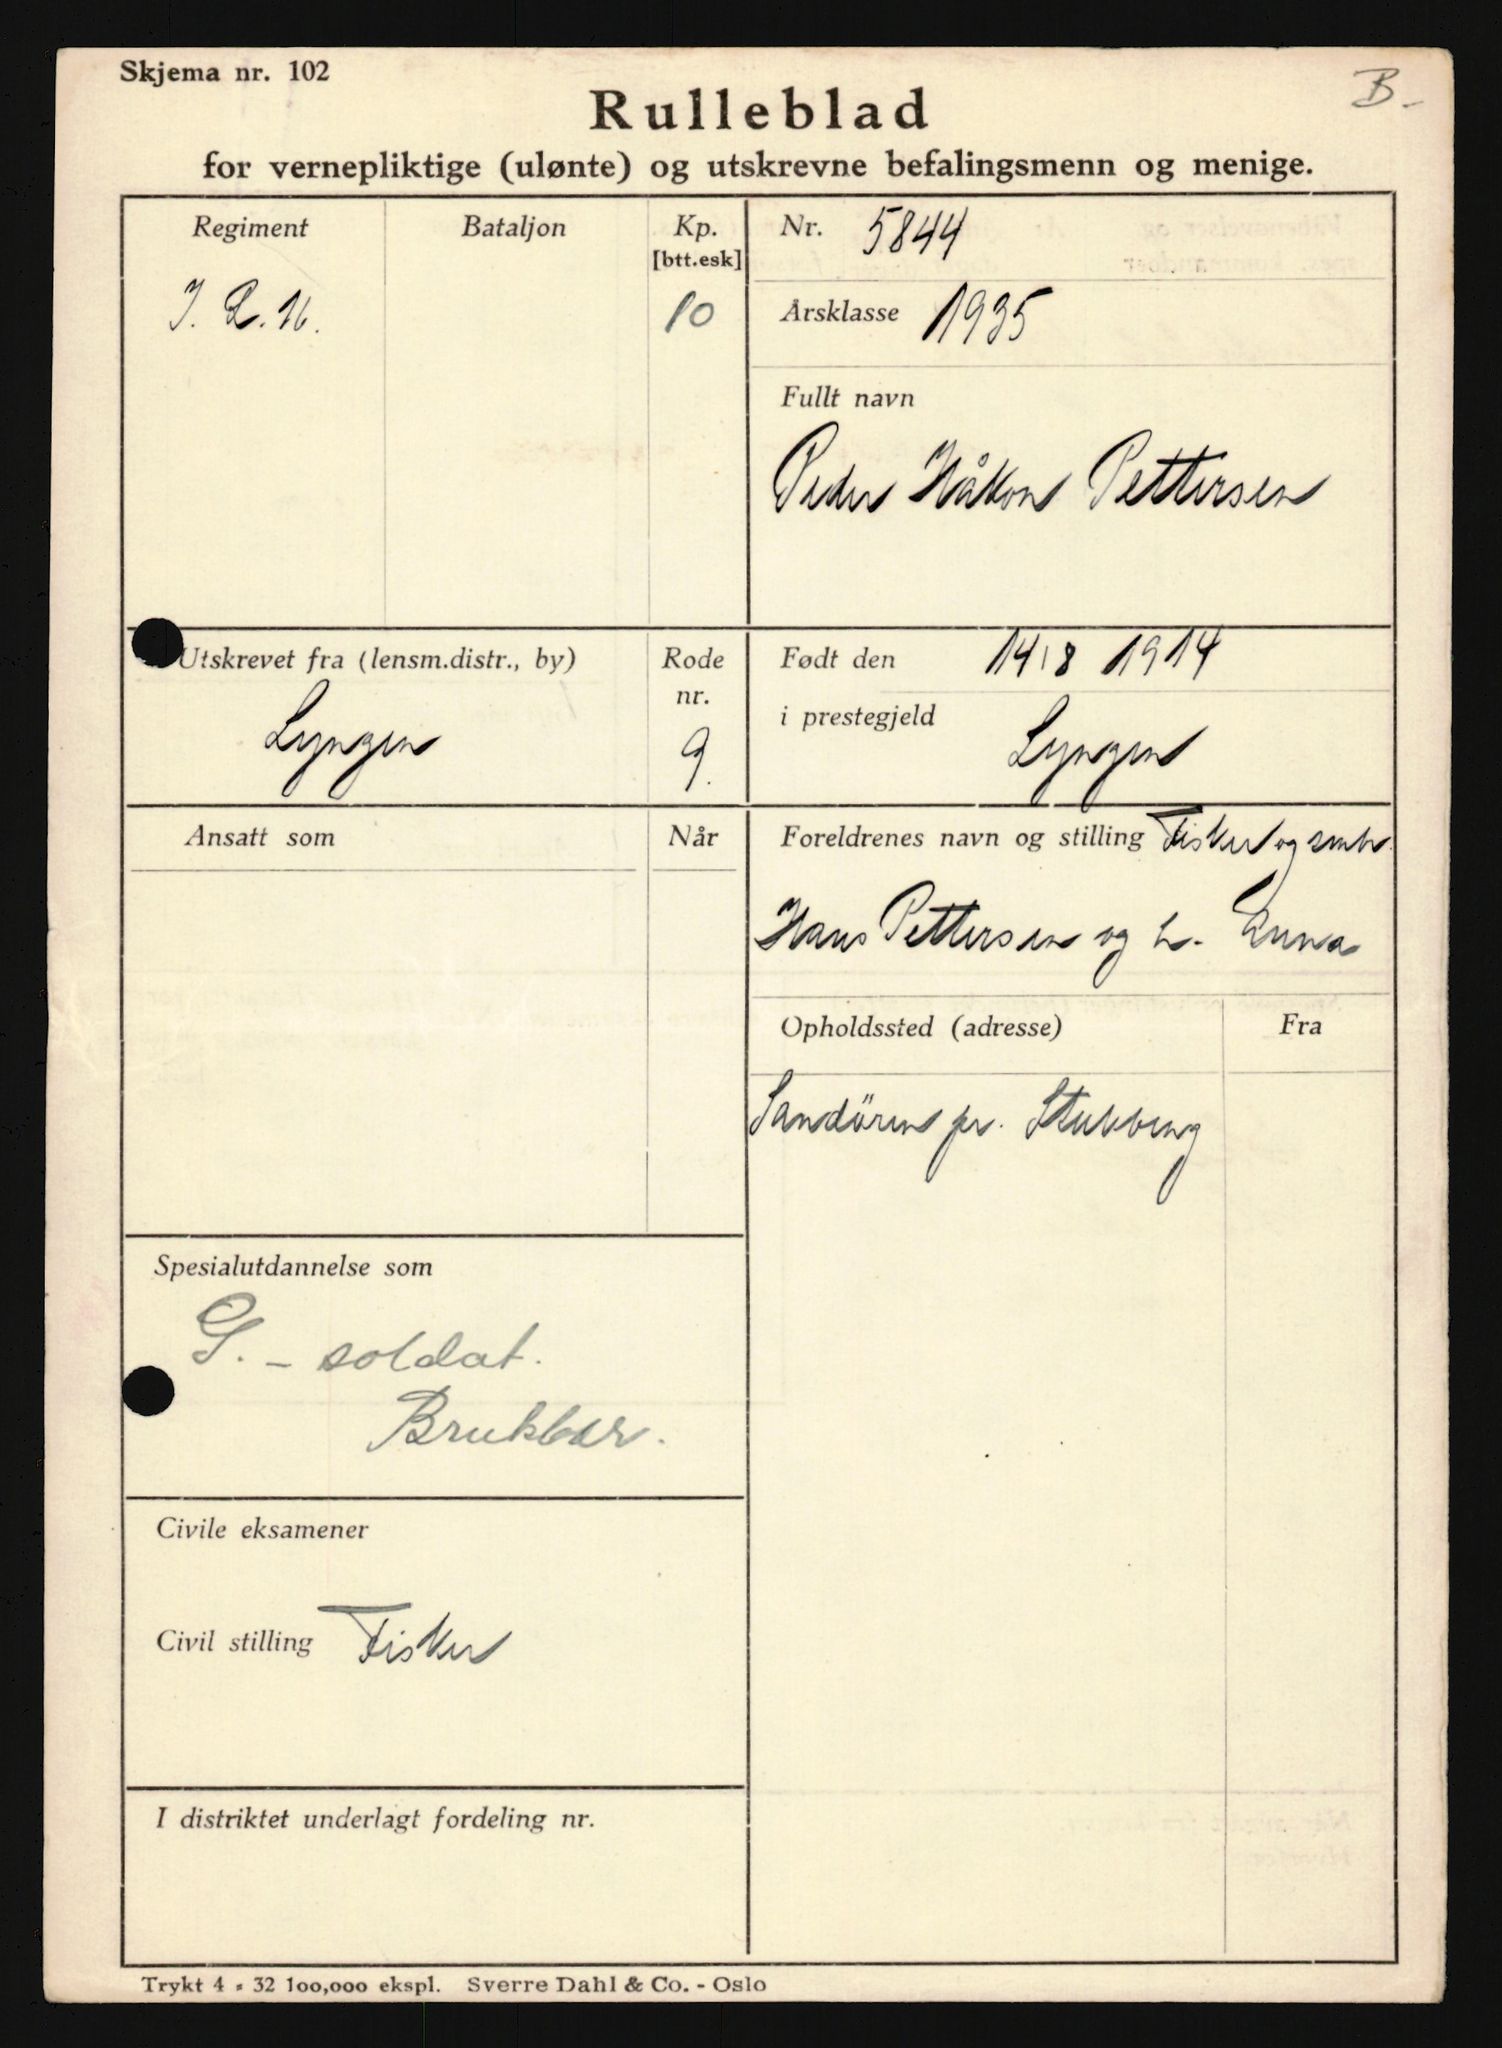 Skjema nr. 102
B-
Rulleblad
for vernepliktige (ulønte) og utskrevne befalingsmenn og menige.
Regiment
Bataljon
Kp.
[btt.esk]
I. R. 16.
10
Nr. 5844
Årsklasse 1935
Fullt navn
Peder Håkon Pettersen
Utskrevet fra (lensm.distr., by)
Lyngen
Rode
nr.
9.
Født den 14/8 1914
i prestegjeld
Lyngen
Ansatt som
Når
Foreldrenes navn og stilling Fisker og smbr.
Hans Pettersen og h. Anna
Opholdssted (adresse)
Fra
Sandören pr. Stubbeng
Spesialutdannelse som
G. - soldat.
Brukbar.
Civile eksamener
Civil stilling Fisker
I distriktet underlagt fordeling nr.
Trykt 4 - 32 100,000 ekspl. Sverre Dahl & Co. - Oslo